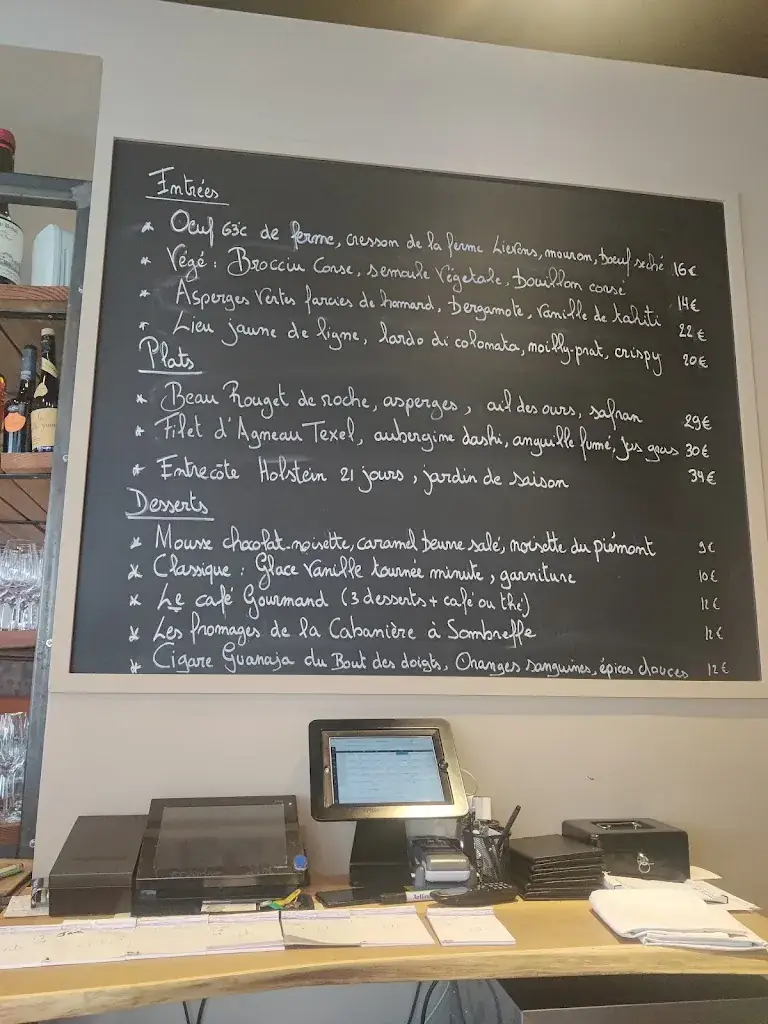 Entrées
* Oeuf 63°c de ferme, cresson de la ferme Lievens, mouron, boeuf seché 16€
* Végé : Brocciu Corse, semoule Végétale, Bouillon corsé 14€
* Asperges Vertes farcies de homard, Bergamote, Vanille de tahiti 22€
* Lieu jaune de ligne, lardo di colomata, noilly-prat, crispy 20€
Plats
* Beau Rouget de roche, asperges, ail des ours, safran 29€
* Filet d'Agneau Texel, aubergine dashi, anguille fumé, jus gras 30€
* Entrecôte Holstein 21 jours, jardin de saison 34€
Desserts
* Mousse chocolat-noisette, caramel beurre salé, noisette du piémont 9€
* Classique : Glace Vanille tournée minute, garniture 10€
* Le café Gourmand (3 desserts + café ou thé) 12€
* Les fromages de la Cabanière à Sombreffe 12€
* Cigare Guanaja du Bout des doigts, Oranges sanguines, épices douces 12€